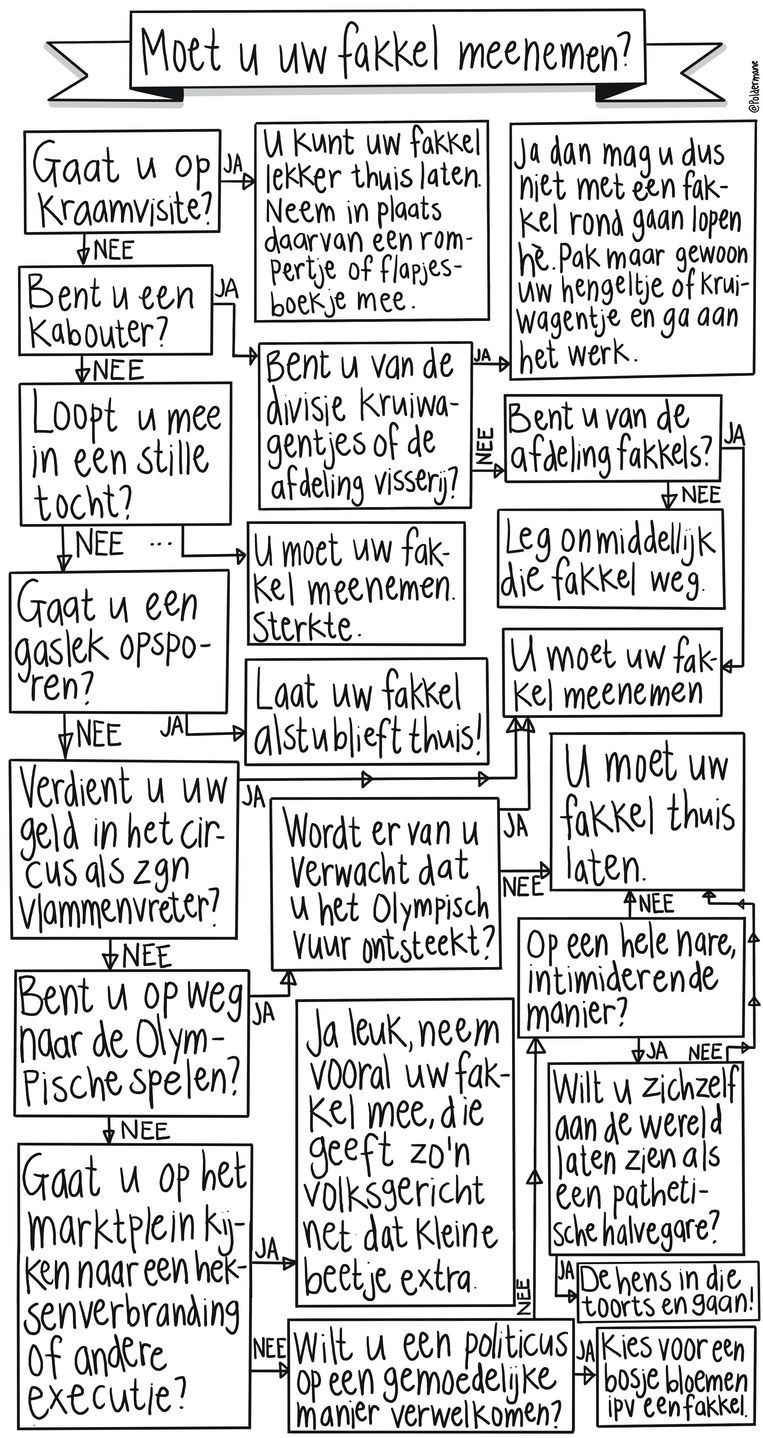 Moet u uw fakkel meenemen?
@Poldermane
Gaat u op
kraamvisite?
JA
U kunt uw fakkel
lekker thuis laten.
Neem in plaats
daarvan een rom-
pertje of flapjes-
boekje mee.
Ja dan mag u dus
niet met een fak-
kel rond gaan lopen
hè. Pak maar gewoon
uw hengeltje of krui-
wagentje en ga aan
het werk.
NEE
Bent u een
kabouter?
JA
Bent u van de
divisie kruiwa-
gentjes of de
afdeling visserij?
JA
NEE
Bent u van de
afdeling fakkels?
JA
NEE
Leg onmiddellijk
die fakkel weg.
NEE
Loopt u mee
in een stille
tocht?
NEE ...
U moet uw fak-
kel meenemen.
Sterkte.
U moet uw fak-
kel meenemen
Gaat u een
gaslek opspo-
ren?
NEE
JA
Laat uw fakkel
alstublieft thuis!
Verdient u uw
geld in het cir-
cus als zgn
vlammenvreter?
JA
NEE
Wordt er van u
verwacht dat
u het Olympisch
vuur ontsteekt?
JA
NEE
U moet uw
fakkel thuis
laten.
Bent u op weg
naar de Olym-
pische spelen?
JA
NEE
Gaat u op het
marktplein kij-
ken naar een hek-
senverbranding
of andere
executie?
JA
Ja leuk, neem
vooral uw fak-
kel mee, die
geeft zo'n
volksgericht
net dat kleine
beetje extra.
NEE
Wilt u een politicus
op een gemoedelijke
manier verwelkomen?
JA
Kies voor een
bosje bloemen
ipv een fakkel.
NEE
Op een hele nare,
intimiderende
manier?
NEE
JA
Wilt u zichzelf
aan de wereld
laten zien als
een patheti-
sche halvegare?
NEE
JA
De hens in die
toorts en gaan!